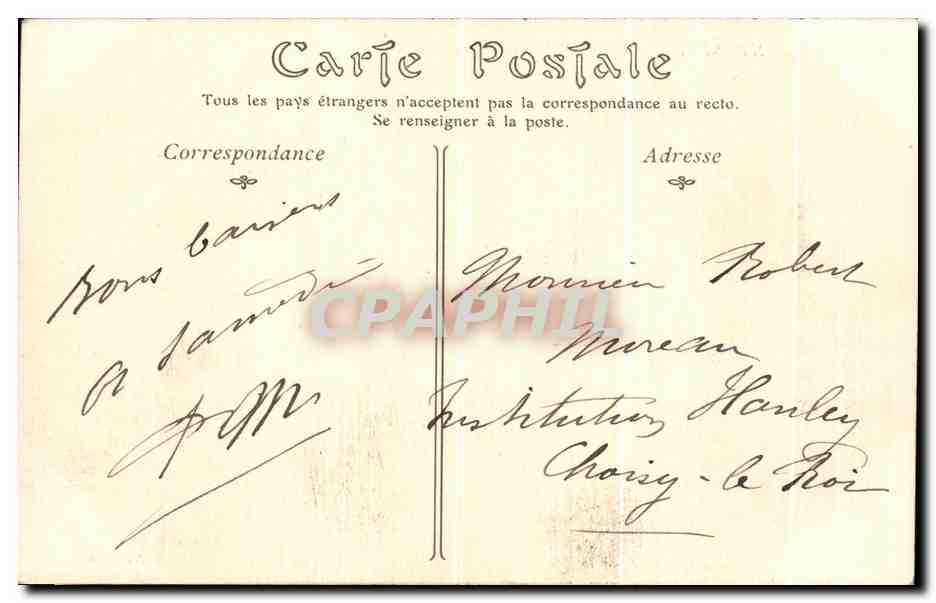 Carte Postale
Tous les pays étrangers n'acceptent pas la correspondance au recto.
Se renseigner à la poste.
Correspondance
Adresse
Bons baisers
A samedi
CPAPHIL
Monsieur Robert
Moreau
Institution Hanley
Choisy-le Roi